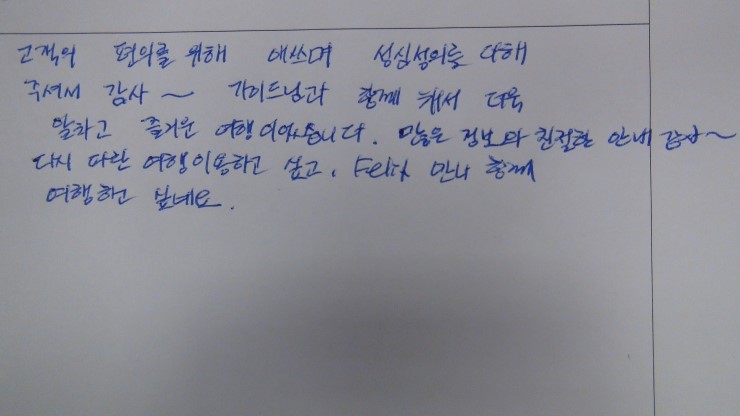 고객의 편의를 위해 애쓰며 성심성의를 다해
주셔서 감사~ 가이드님과 함께 해서 더욱
알차고 즐거운 여행이었습니다. 많은 정보와 친절한 안내 감사~
다시 파란 여행 이용하고 싶고, Felix 만나 함께
여행하고 싶네요.